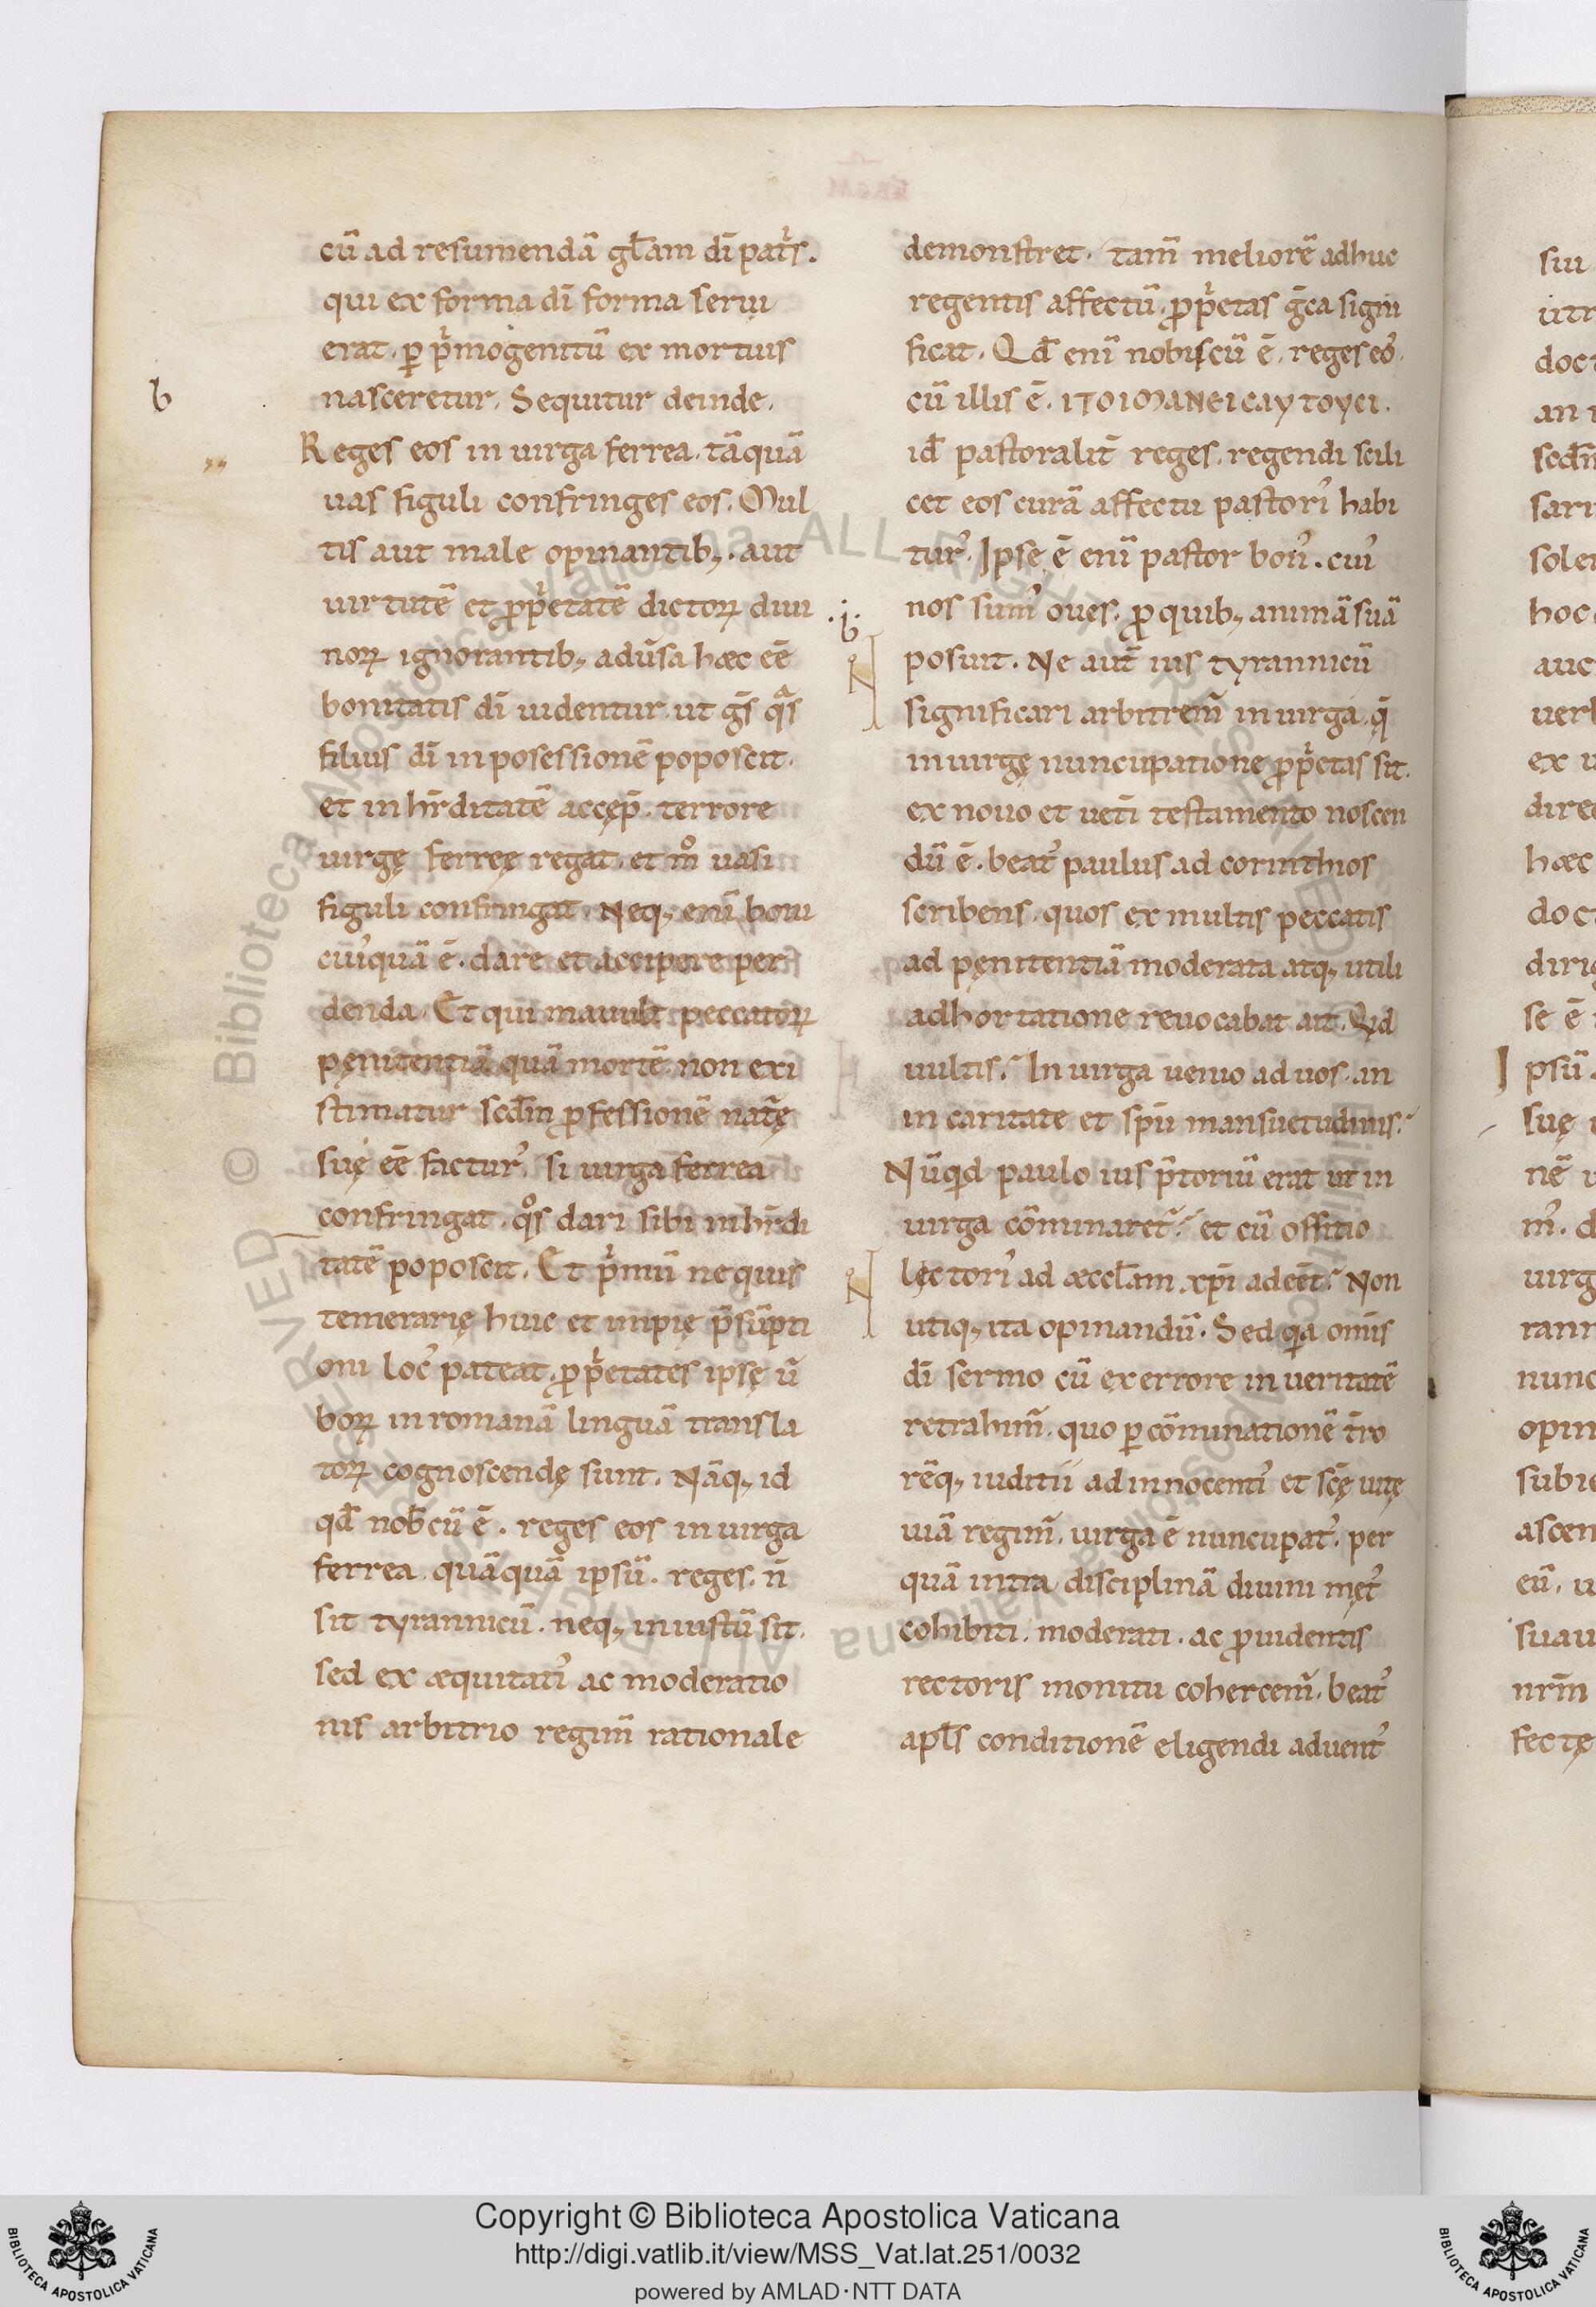 cū ad resumendā gl̄am dī patͥs.
qui ex forma dī forma serui
erat. ꝑ pͥmogenitū ex mortuis
b
nasceretur. Sequitur deinde.
Reges eos in uirga ferrea. tāquā
uas figuli confringes eos. Mul
tis aut male opinantibꝫ. aut
uirtutē et ꝓpͥetatē dictoꝝ diui
noꝝ ignorantibꝫ adūsa hæc eē
bonitatis dī uidentur. ut ḡs qͣs
filius dī in posessionē poposcit.
et in hr̄ditatē accęp̄. terrore
uirgę ferreę regat. et mͦ uasi
figuli confringat. Neqꝫ enī boni
cuiꝰquā ē. dare et accipere per
denda. Et qui mauult peccatoꝝ
pęnitentiā quā mortē. non exi
stimatur scd̄m ꝓfessionē nat̄ę
suę eē facturꝰ. si uirga ferrea
confringat. qͦs dari sibi in hr̄di
tatē poposcit. Et pͥmū ne quis
temerarię huic et impię p̄sūpti
oni locꝰ pateat. ꝓpͥetates ipsę ū
boꝝ in romanā linguā transla
toꝝ cognoscendę sunt. Nāqꝫ id
qd̄ nob̄cū ē. reges eos in uirga
ferrea. quāquā ipsū. reges. n̄
sit tyrannicū. neqꝫ iniustū sit.
sed ex æquitatiꝰ ac moderatio
nis arbitrio regim̄ rationale
demonstret. tam̄ meliorē adhuc
regentis affectū. ꝓpͥetas ḡca signi
ficat. Qd̄ enī nobiscū ē. reges eoꝰ.
cū illis ē. ΙΤΟΙΜΑΝΕΙCΑΥΤΟΥCΙ.
id̄ pastoralit̄ reges. regendi scili
cet eos curā affectu pastoriꝰ habi
turꝰ. Ipse ē enī pastor bonꝰ. cuiꝰ
.b.
nos sumꝰ oues. ꝓ quibꝫ animā suā
posuit. Ne aut̄ ius tyrannicū
significari arbitrem̄ in uirga. q̄
in uirgę nuncupatione ꝓpͥetas sit.
ex nouo et uet̄i testamento noscen
dū ē. beatꝰ paulus ad corinthios
scribens. quos ex multis peccatis
ad pęnitentiā moderata atqꝫ utili
adhortatione reuocabat ait. Qͥd
uultis? In uirga uenio ad uos. an
in caritate et sp̄u mansuetudinis?
Nūqͥd paulo ius p̄toriū erat ut in
uirga cōminaret̄? et cū offitio
lęctoriꝰ ad æccl̄am xp̄i adeēt? Non
utiqꝫ ita opinandū. Sed qͣ omīs
dī sermo cū ex errore in ueritatē
retrahim̄. quo ꝑ cōminationē t̄ro
rēqꝫ iuditii ad innocentiꝰ et sc̄ę uitę
uiā regim̄. uirga ē nuncupatꝰ. per
quā intra disciplinā diuini mętꝰ
cohibiti. moderati. ac ꝓuidentis
rectoris monitu cohercem̄. beatꝰ
apl̄s conditionē eligendi aduentꝰ
Copyright © Biblioteca Apostolica Vaticana
http://digi.vatlib.it/view/MSS_Vat.lat.251/0032
powered by AMLAD·NTT DATA
BIBLIOTECA APOSTOLICA VATICANA
BIBLIOTECA APOSTOLICA VATICANA